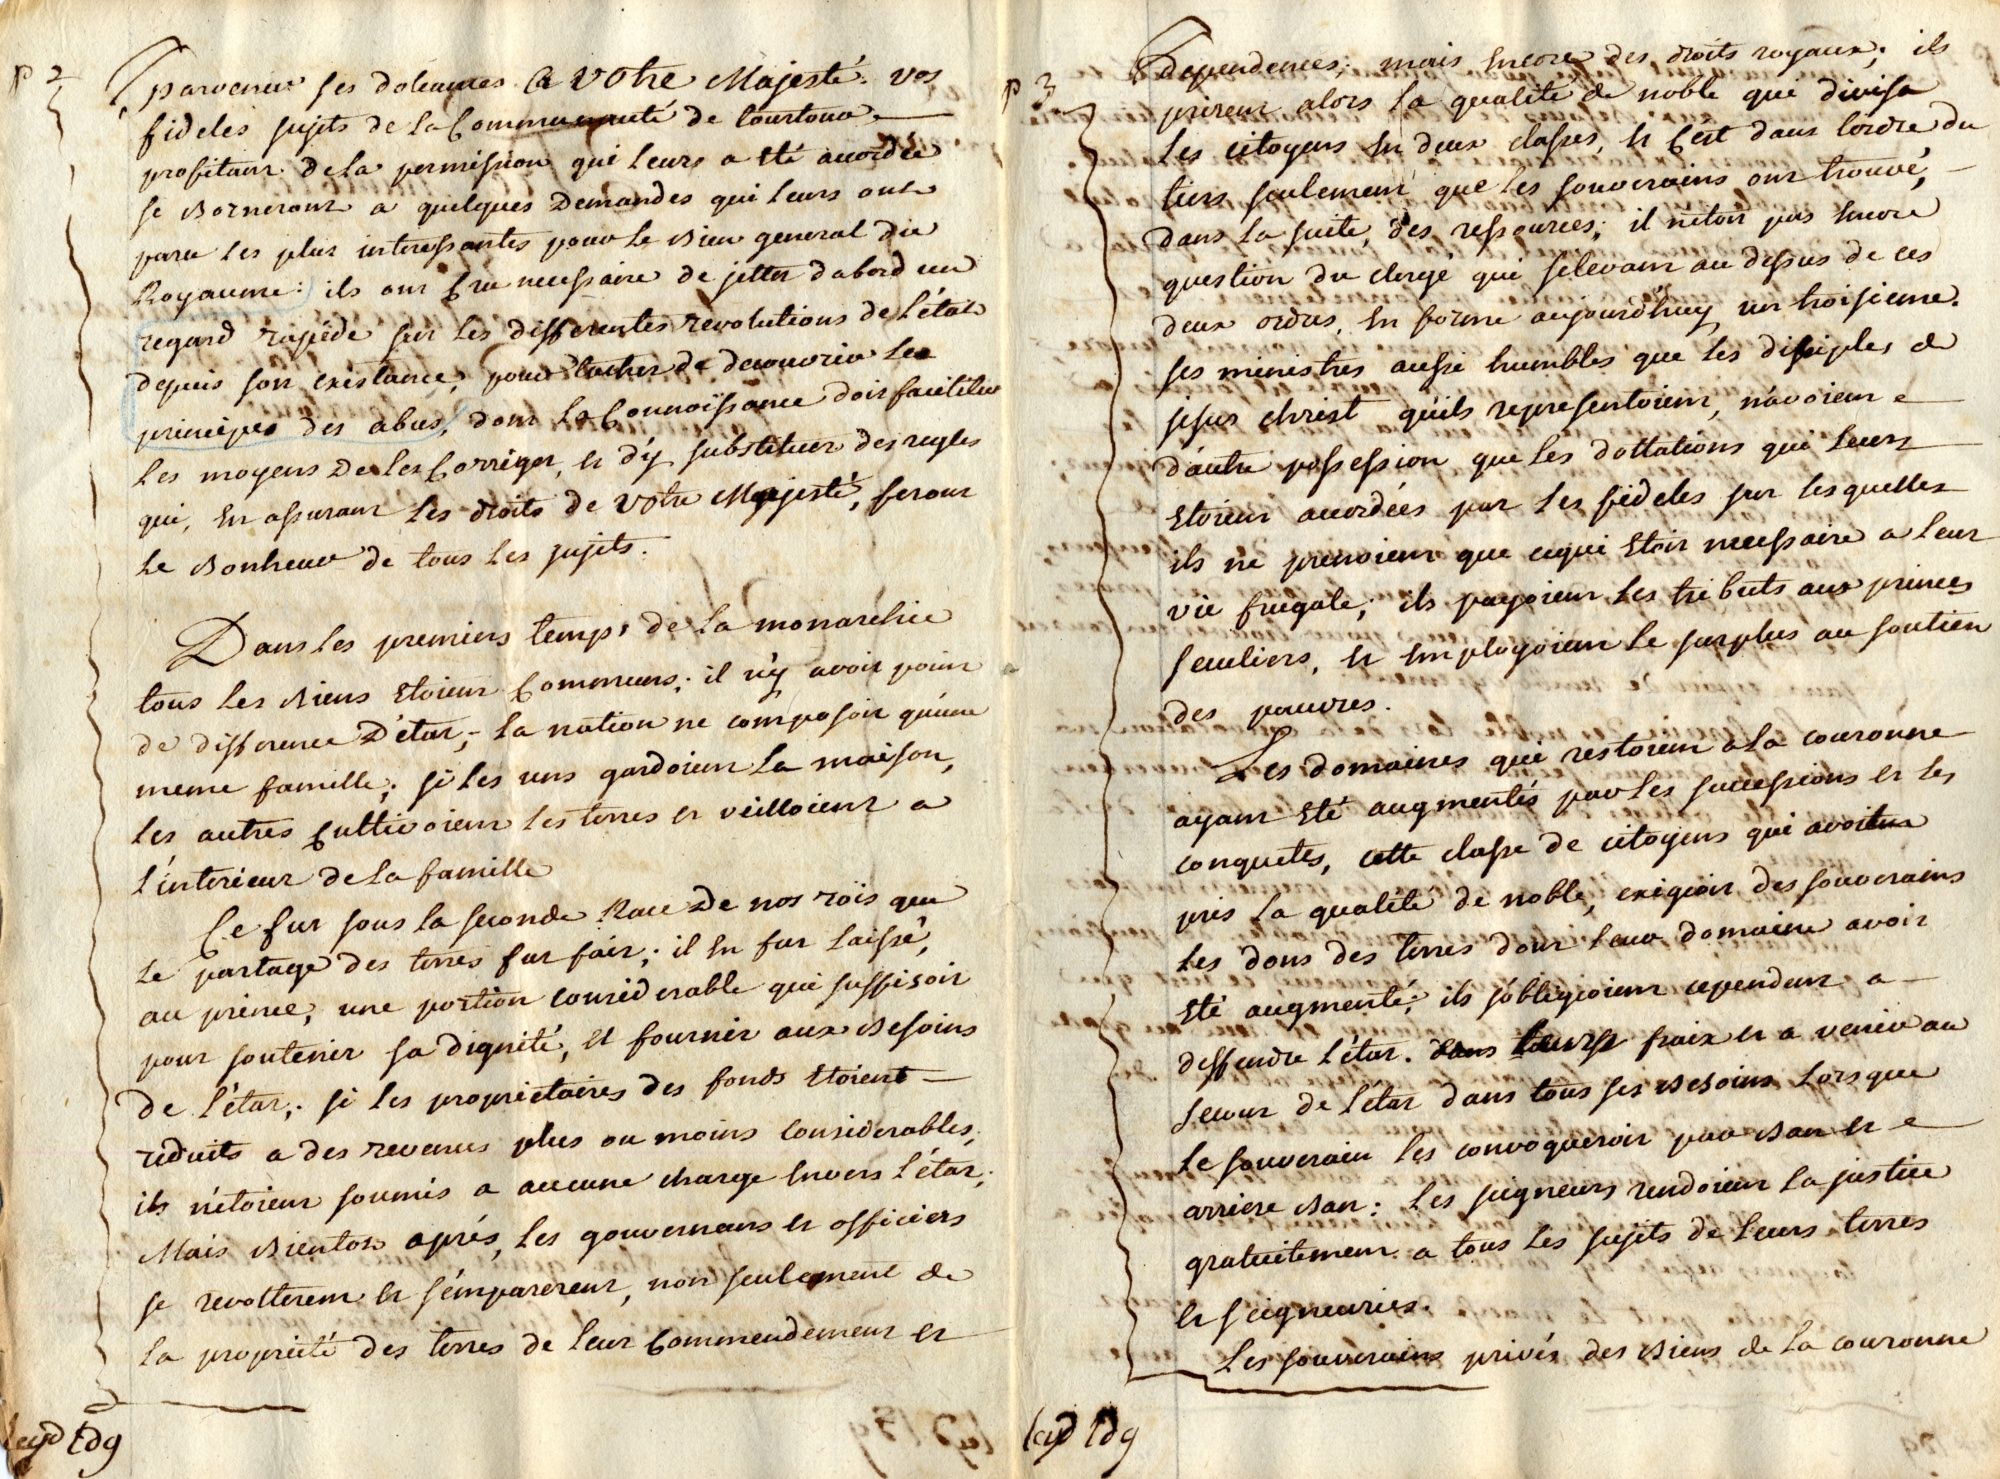 p 2
parvenir ses doleances a votre Majesté. vos
fideles sujets de la Communauté de Courtoux
profitant de la permission qui leurs a eté accordée
se borneront a quelques demandes qui leurs ont
paru les plus interessantes pour le bien general du
Royaume: ils ont cru necessaire de jetter d'abord un
regard rapide sur les differentes revolutions de l'état
depuis son existance, pour tacher de decouvrir les
principes des abus, dont la Connoissance doit faciliter
les moyens de les Corriger, et d'y substituer des regles
qui, en assurant les droits de votre Majesté, feront
le bonheur de tous les sujets.
Dans les premiers temps de la monarchie
tous les biens etoient Communs; il n'y avoit point
de difference d'état; la nation ne composoit qu'une
meme famille; si les uns gardoient la maison,
les autres Cultivoient les terres et veilloient a
l'interieur de la famille
Ce fut sous la seconde Race de nos rois que
le partage des terres fut fait; il en fut laissé,
au prince, une portion considerable qui suffisoit
pour soutenir sa dignité, et fournir aux besoins
de l'état; si les proprietaires des fonds etoient
reduits a des revenus plus ou moins considerables,
ils n'etoient soumis a aucune charge envers l'état;
Mais bientot aprés, les gouvernans et officiers
se revolterent et s'emparerent, non seulement de
la proprieté des terres de leur Commendement et
p 3
dependences; mais encore des droits royaux; ils
prirent alors la qualité de noble qui divisa
les citoyens en deux classes, et c'est dans l'ordre du
tiers seulement que les souverains ont trouvé,
dans la suite, des ressources; il n'etoit pas encore
question du clergé qui s'elevant au dessus de ces
deux ordres, en forme aujourd'huy un troisieme.
ses ministres aussi humbles que les disciples de
jesus christ qu'ils representoient, n'avoient
d'autre possession que les dottations qui leurs
etoient accordées par les fideles sur lesquelles
ils ne prenoient que cequi etoit necessaire a leur
vie frugale; ils payoient les tributs aux princes
seculiers, et employoient le surplus au soutien
des pauvres.
Les domaines qui restoient a la couronne
ayant eté augmentés par les successions et les
conquetes, cette classe de citoyens qui avoient
pris la qualité de noble, exigeoit des souverains
les dons des terres dont leur domaine avoit
eté augmenté; ils s'obligeoient cependant a
deffendre l'état. leurs fraix et a venir au
secour de l'état dans tous ses besoins lorsque
le souverain les convoqueroit par ban et
arriere ban: les seigneurs rendoient la justice
gratuitement a tous les sujets de leurs terres
et seigneuries.
Les souverains privés des biens de la couronne